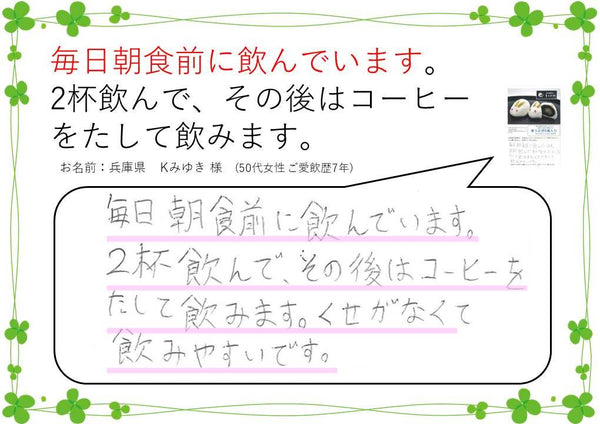 毎日朝食前に飲んでいます。
2杯飲んで、その後はコーヒー
をたして飲みます。
お名前：兵庫県　Kみゆき 様　(50代女性 ご愛飲歴7年)
毎日朝食前に飲んでいます。
2杯飲んで、その後はコーヒーを
たして飲みます。くせがなくて
飲みやすいです。